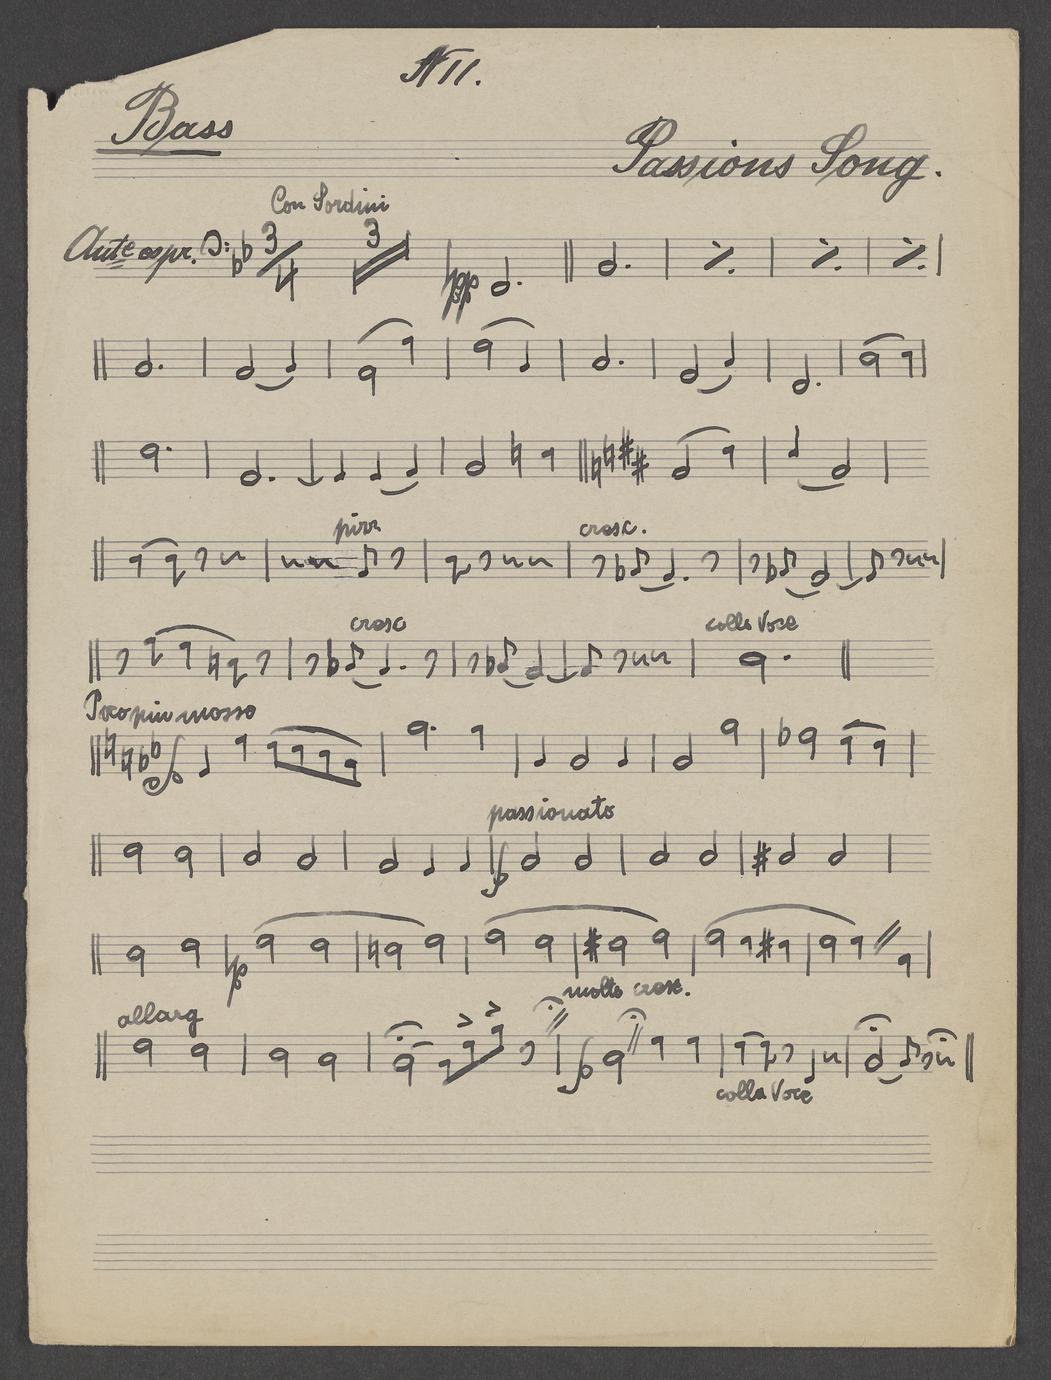 N 11.
Bass
Passions Song.
Con Sordini
Ante espr. 3 4 3
pp
pizz cresc.
cresc colla Voce
Poco piu mosso
f
passionato
f
p
molto cresc.
allarg
f
colla Voce